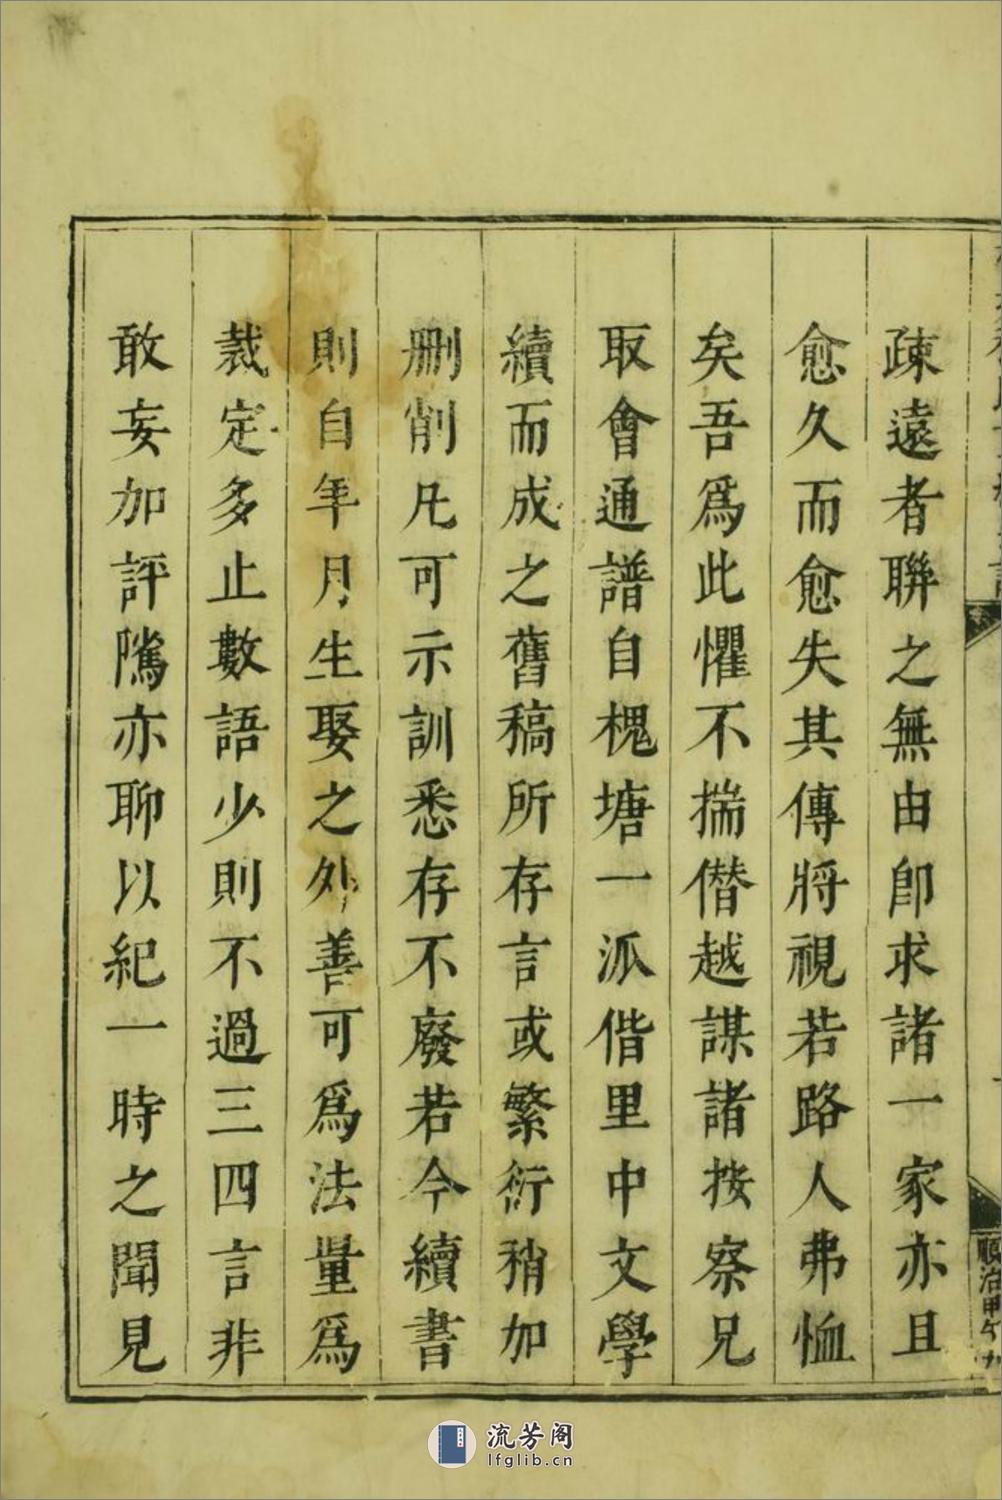 疎遠者聯之無由卽求諸一家亦且
愈久而愈失其傳將視若路人弗恤
矣吾爲此懼不揣僭越謀諸按察兄
取會通譜自槐塘一派偕里中文學
續而成之舊稿所存言或繁衍稍加
删削凡可示訓悉存不廢若今續書
則自年月生娶之外善可爲法量爲
裁定多止數語少則不過三四言非
敢妄加評隲亦聊以紀一時之聞見
順治甲午
流芳阁
lfglib.cn